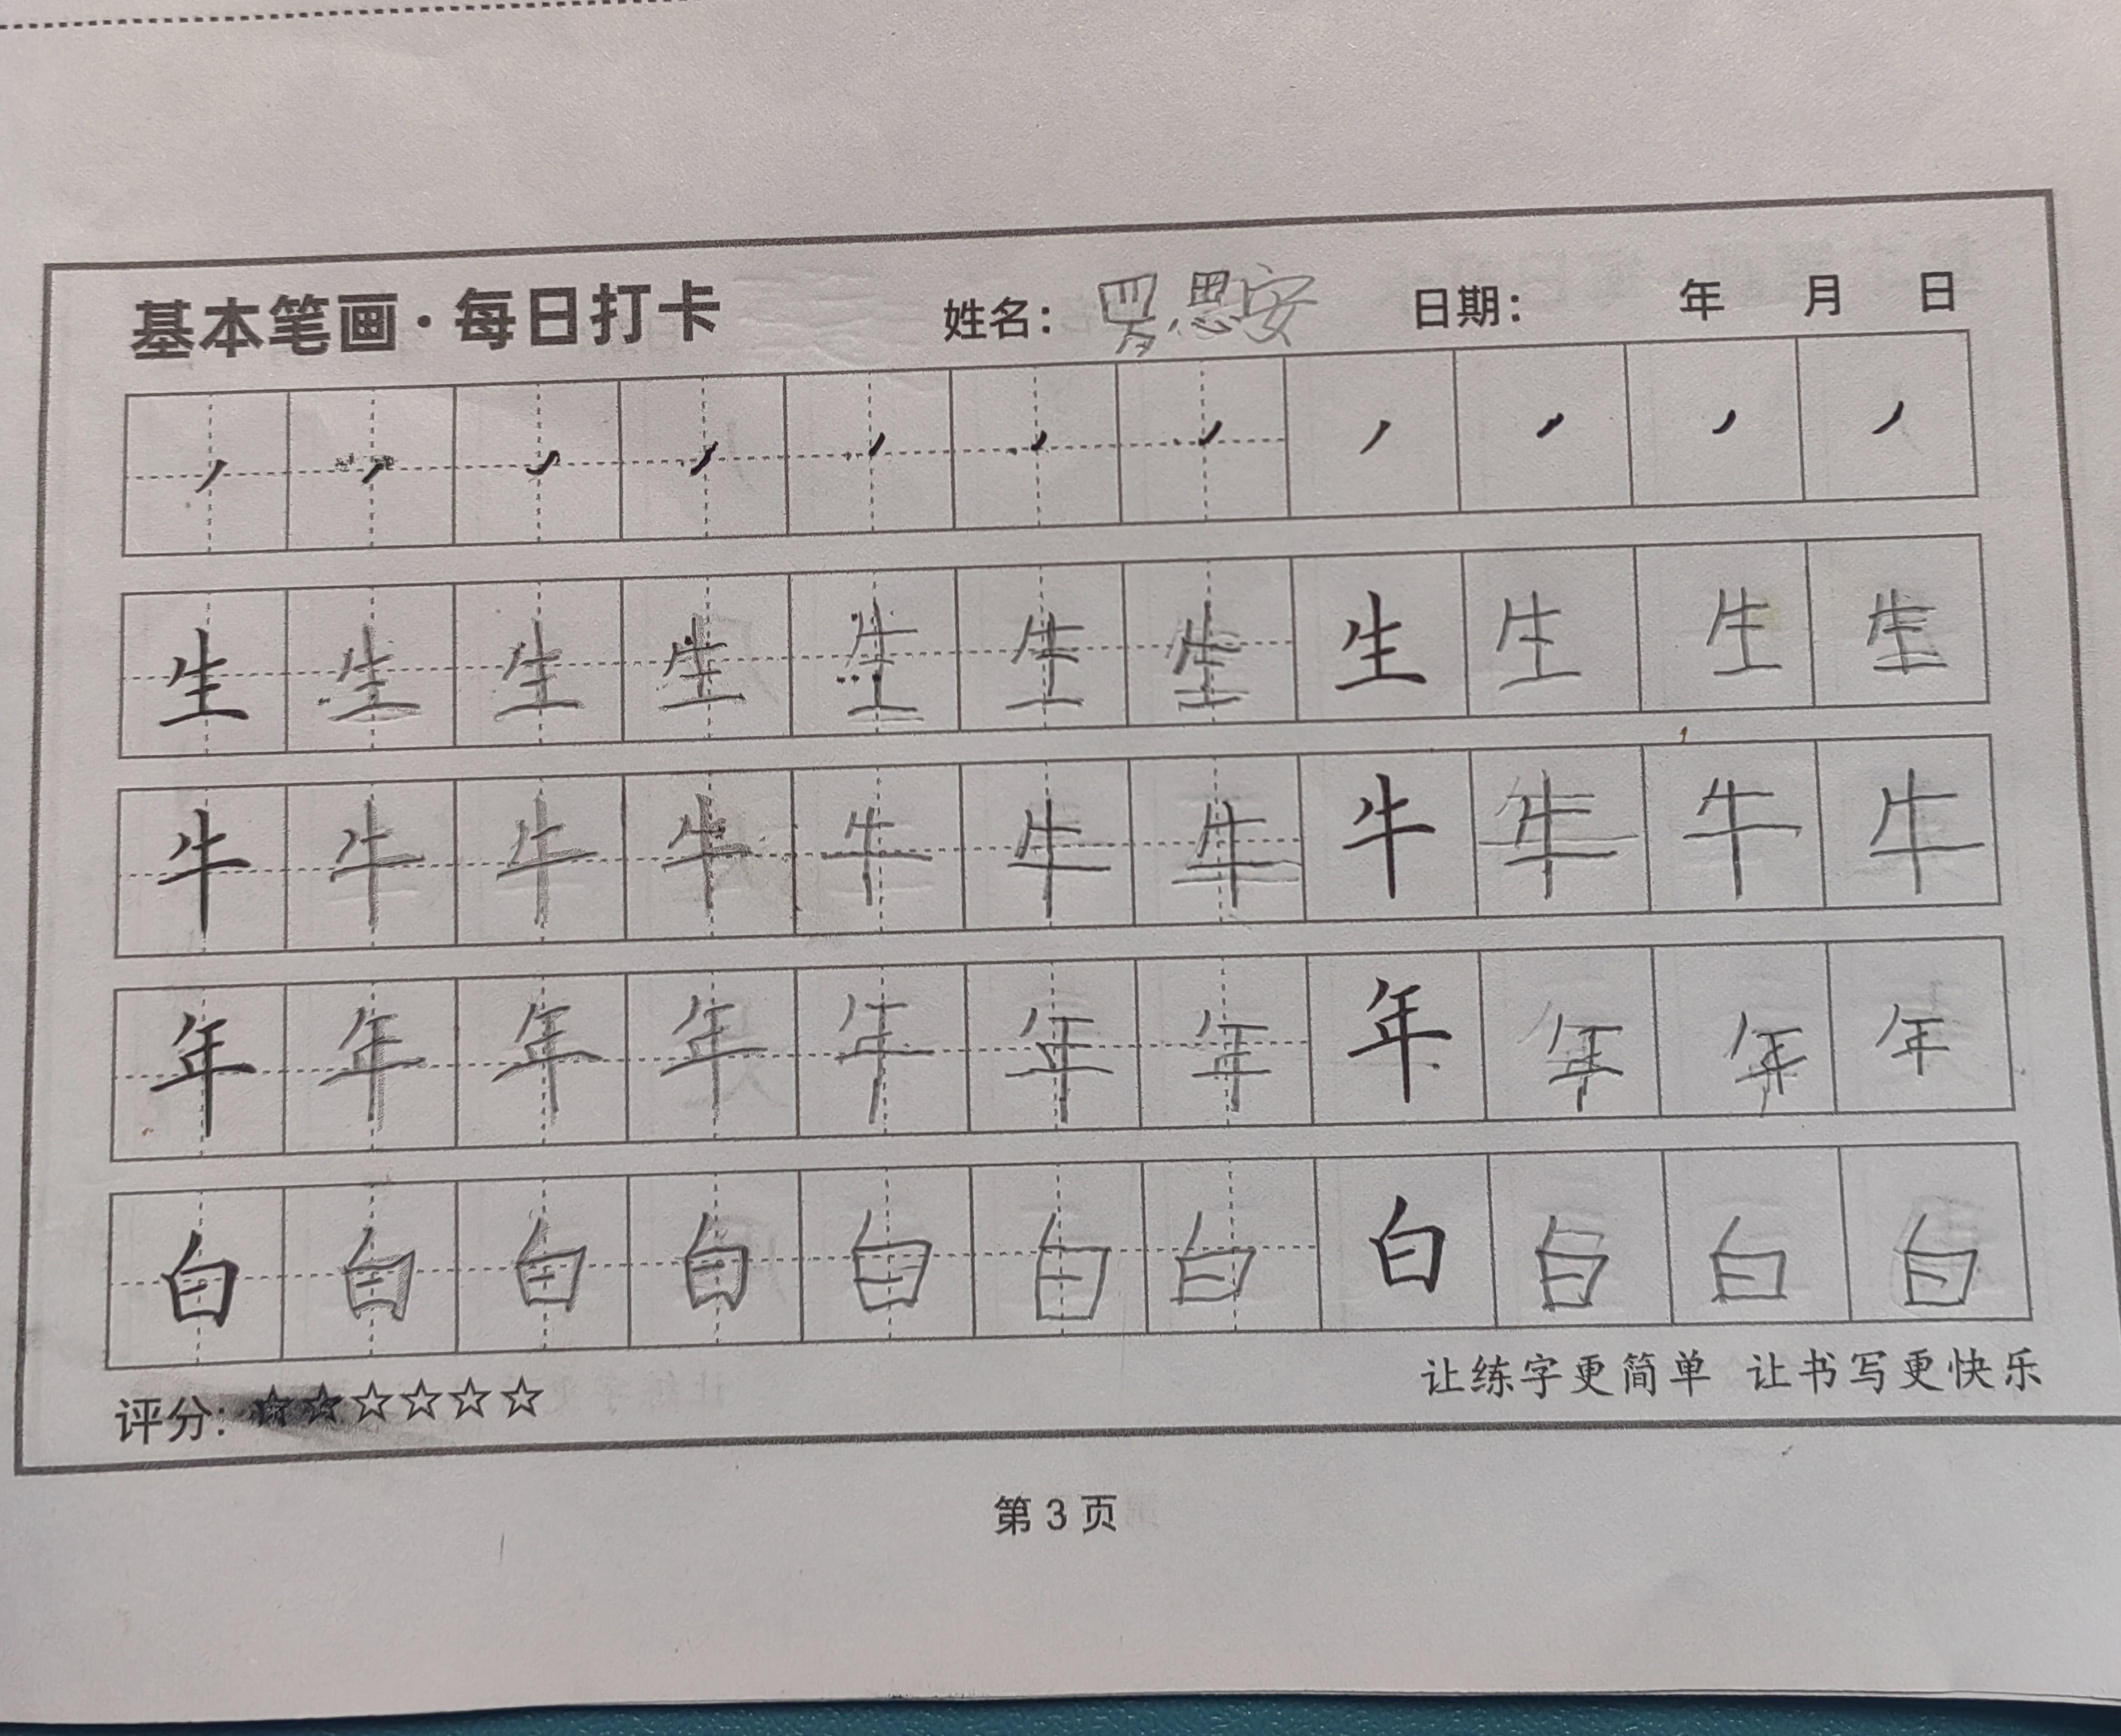 基本笔画·每日打卡 姓名：罗思安 日期： 年 月 日
丿 丿 丿 丿 丿 丿 丿 丿 丿 丿 丿
生 生 生 生 生 生 生 生 生 生 生
牛 牛 牛 牛 牛 牛 牛 牛 牛 牛 牛
年 年 年 年 年 年 年 年 年 年 年
白 白 白 白 白 白 白 白 白 白 白
评分：☆☆☆☆☆☆ 让练字更简单 让书写更快乐
第 3 页